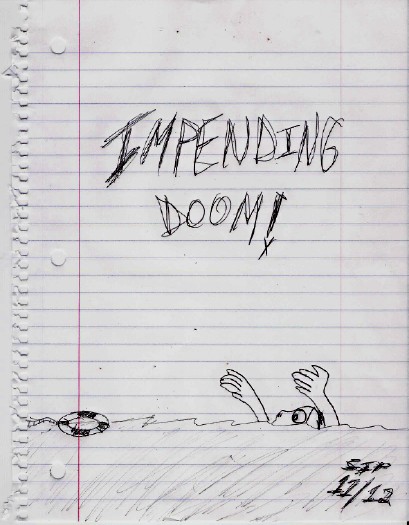 IMPENDING
DOOM!
SIP
12/12